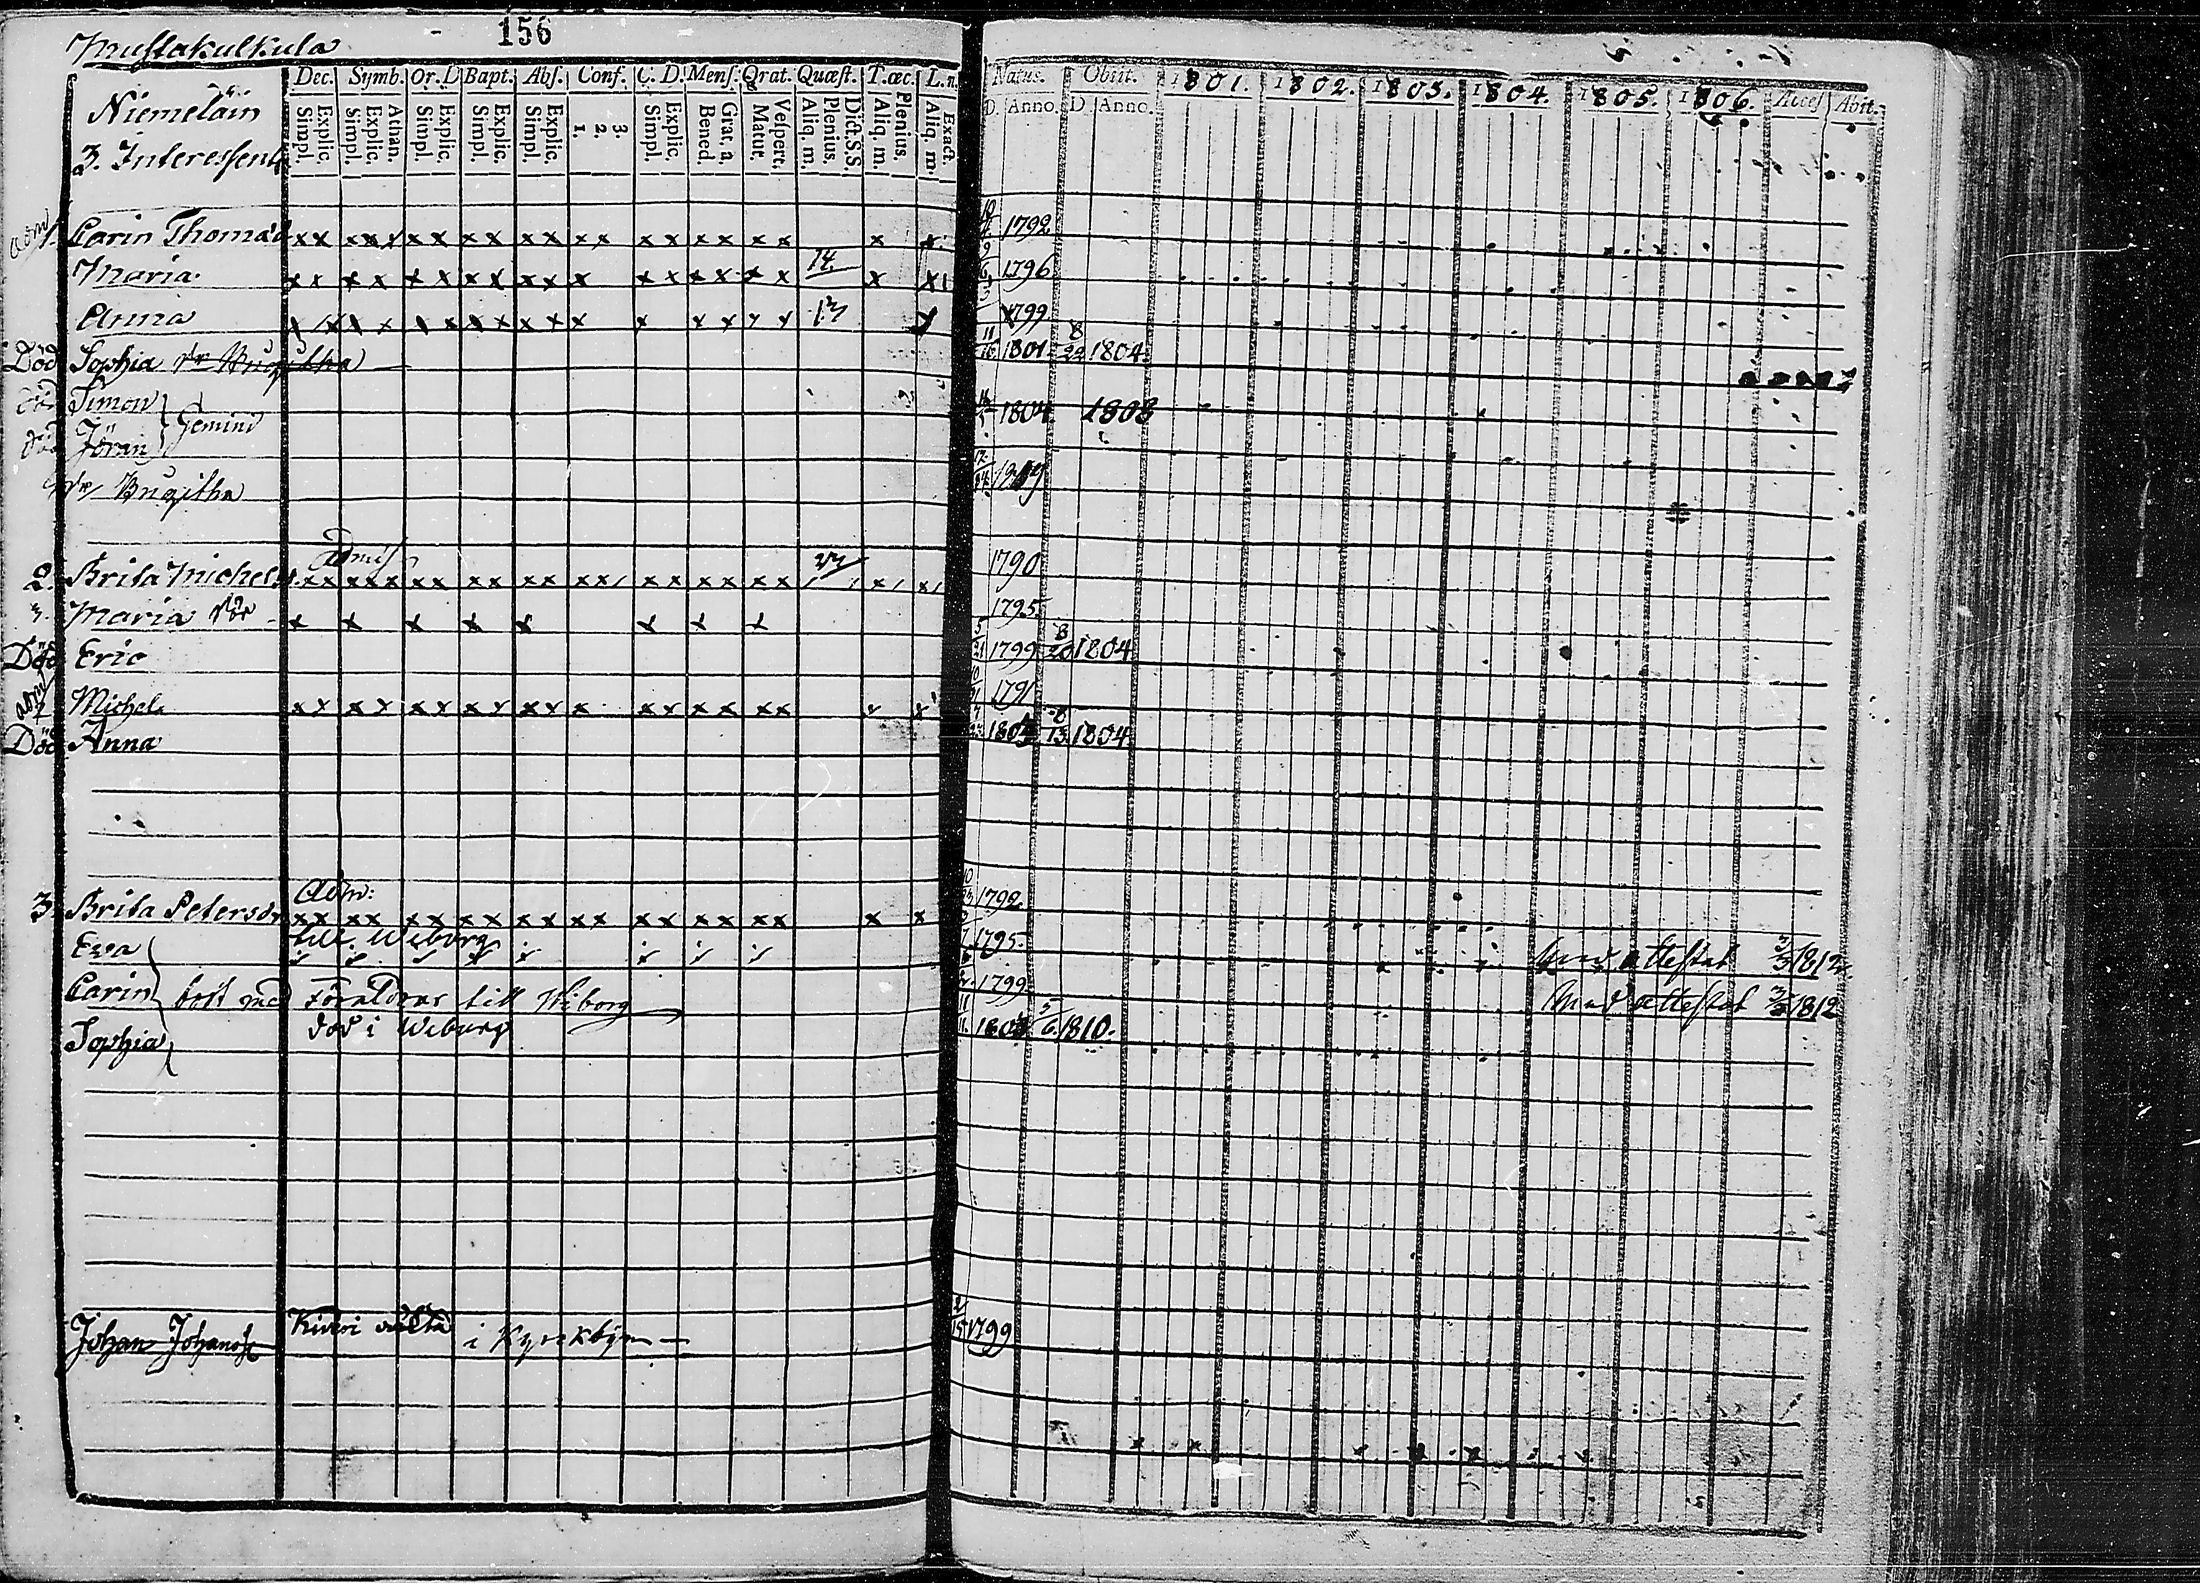 156
Mustakulkula
Niemeläin
3. Interessent
Dec. Symb. Or. D Bapt. Abs. Conf. C. D. Mens. Orat. Quæst. T. œc. L. n.
Simpl. Explic. Simpl. Explic. Athan. Simpl. Explic. Simpl. Explic. Simpl. Explic. 1. 2. 3. Simpl. Explic. Bened. Grat. a. Matut. Vespert. Aliq. m. Plenius. Dict. S.S. Aliq. m. Plenius. Aliq. m. Exact.
Natus. Obiit. 1801. 1802. 1803. 1804. 1805. 1806. Acces Abit.
D. Anno. D. Anno.
adm Carin Thomæd x x x x x x x x x x x x x x x x x x x x x 1792
Maria x x x x x x x x x x x x x x x x x 14. x x 1796
Anna 13 1799
Död Sophia dr Brigitha 11/10 1801 8/22 1804
död Simon Gemini 1804 1808
död Jöran
dr Brigitha
admis
2. Brita Michelsd. 27 1790
3. Maria dr x x x x x x x x 1795.
Död Eric 5/21 1799 8/20 1804
adm Michel 1791
Död Anna 1804 8/13 1804
Adm:
3. Brita Petersdr x x x x x x x x x x x x x x x x x x x x 1792
till Wiborg
Eva 1795. Med attestat 3/3 1812
Carin bort med Föräldrar till Wiborg 1799 Med attestat 1812
Sophia död i Wiburg 5/6 1810.
Johan Johanss i Kyrckbyn 1799